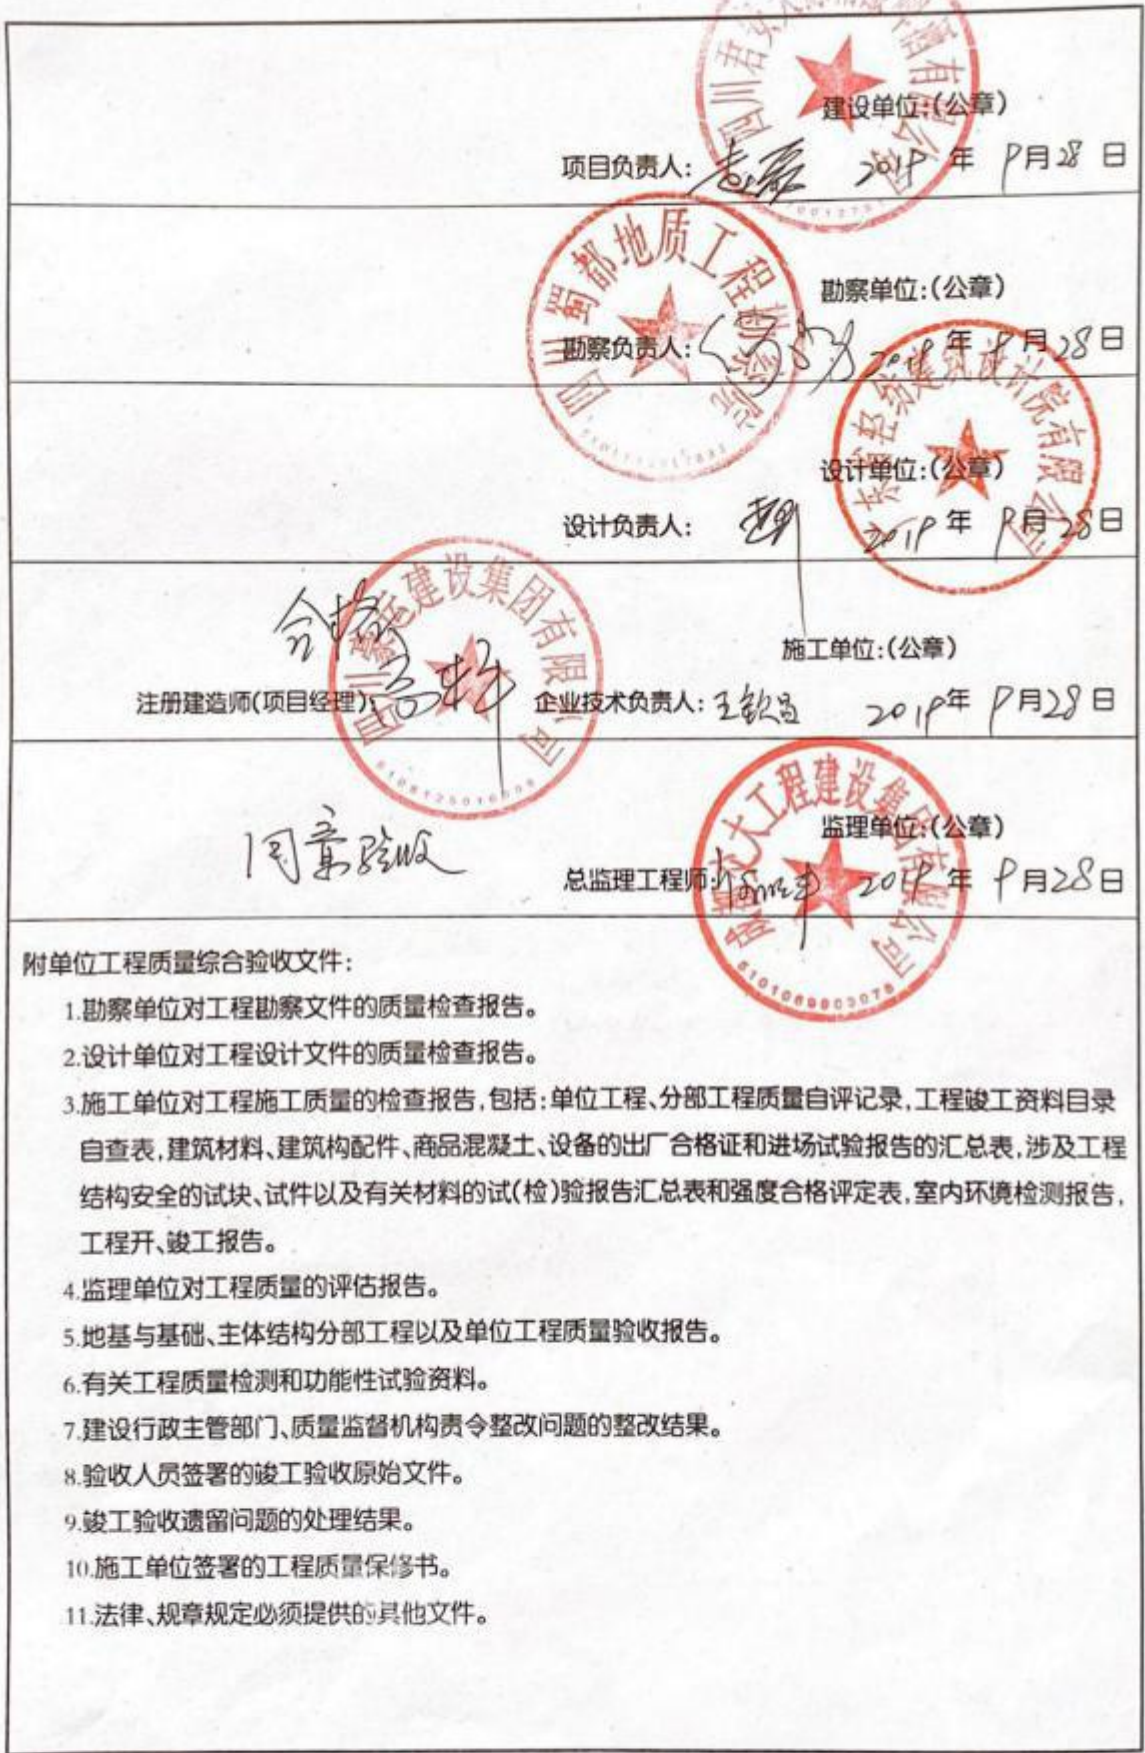 建设单位:(公章)
项目负责人: 2019年 9月28日
四川蜀都地质工程勘察院
勘察单位:(公章)
勘察负责人: 2019年 9月28日
建筑设计院有限公司
设计单位:(公章)
设计负责人: 2019年 9月28日
合格
建设集团有限公司
施工单位:(公章)
注册建造师(项目经理): 企业技术负责人: 2019年 9月28日
大工程建设集团有限公司
监理单位:(公章)
同意验收
总监理工程师: 2019年 9月28日
附单位工程质量综合验收文件:
1.勘察单位对工程勘察文件的质量检查报告。
2.设计单位对工程设计文件的质量检查报告。
3.施工单位对工程施工质量的检查报告,包括:单位工程、分部工程质量自评记录,工程竣工资料目录
自查表,建筑材料、建筑构配件、商品混凝土、设备的出厂合格证和进场试验报告的汇总表,涉及工程
结构安全的试块、试件以及有关材料的试(检)验报告汇总表和强度合格评定表,室内环境检测报告,
工程开、竣工报告。
4.监理单位对工程质量的评估报告。
5.地基与基础、主体结构分部工程以及单位工程质量验收报告。
6.有关工程质量检测和功能性试验资料。
7.建设行政主管部门、质量监督机构责令整改问题的整改结果。
8.验收人员签署的竣工验收原始文件。
9.竣工验收遗留问题的处理结果。
10.施工单位签署的工程质量保修书。
11.法律、规章规定必须提供的其他文件。